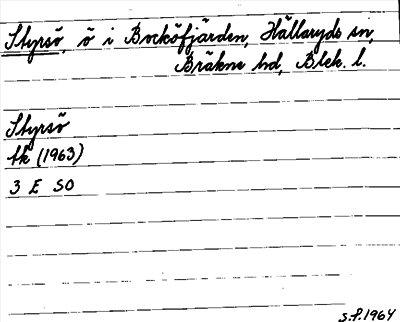 Styrsö, ö i Bocköfjärden, Hällaryds sn,
Bräkne hd, Blek. l.
Styrsö
tk (1963)
3 E SO
S.P.1964